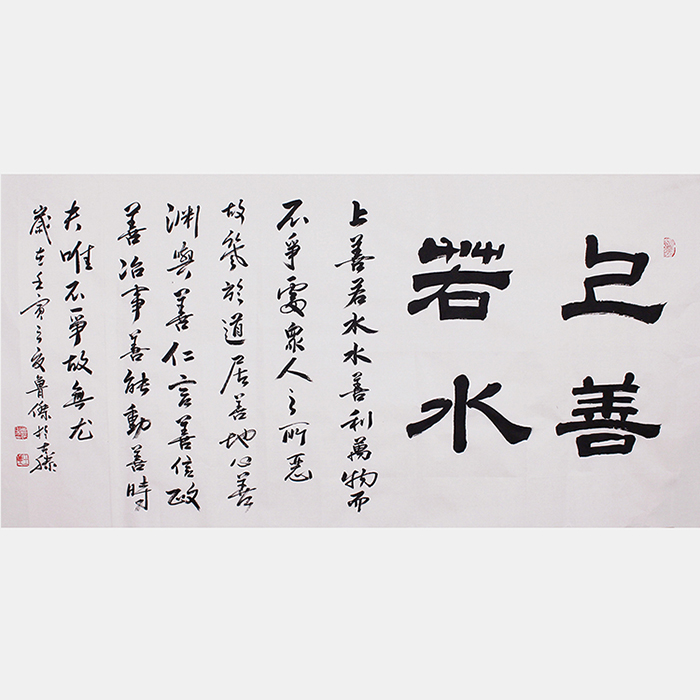 上善
若水
上善若水水善利萬物而
不爭處衆人之所惡
故幾於道居善地心善
淵與善仁言善信政
善治事善能動善時
夫唯不爭故無尤
歲在壬寅之夏魯傑於古滕